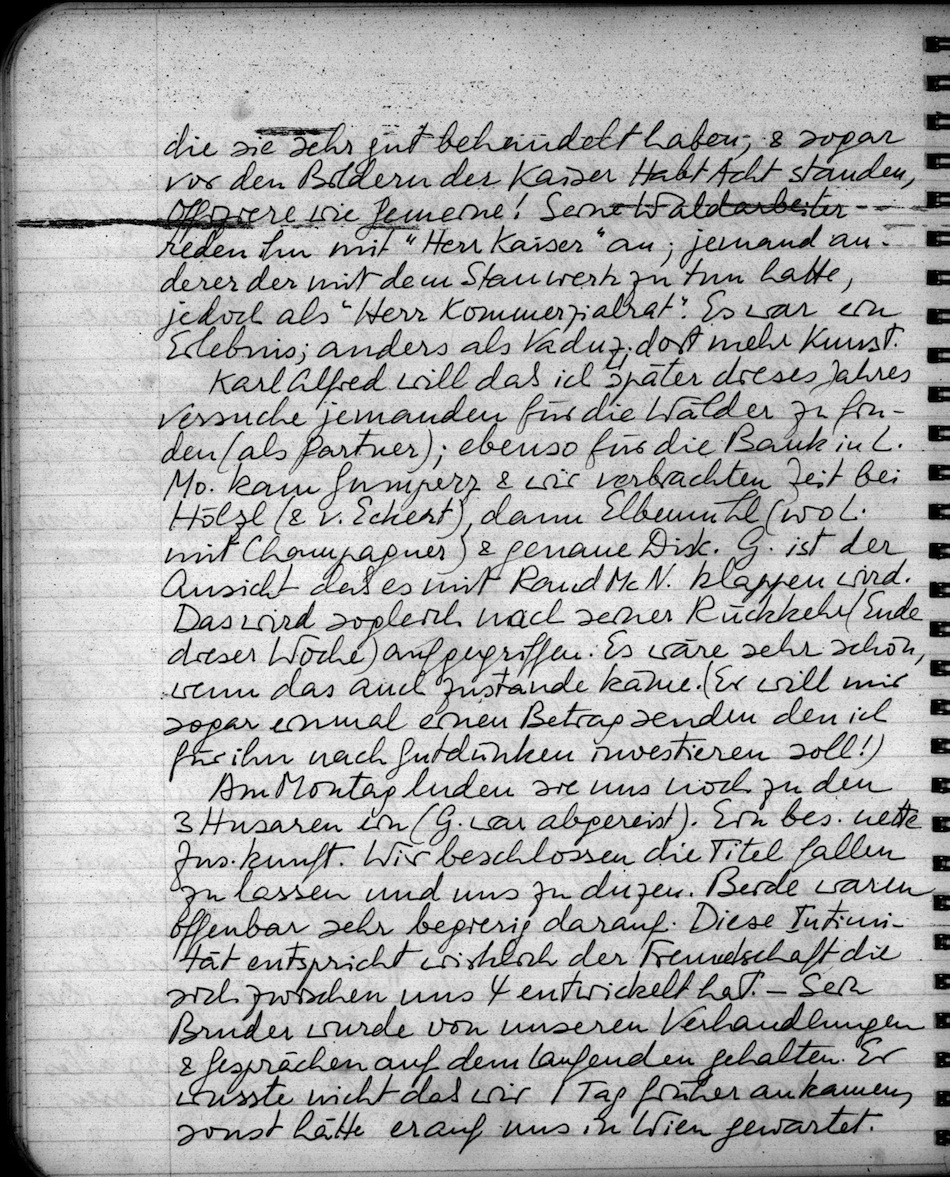 die sie sehr gut behandelt haben, & sogar
vor den Bildern der Kaiser Habt Acht standen,
Offiziere wie Gemeine! Seine Waldarbeiter
reden ihn mit "Herr Kaiser" an; jemand an-
derer der mit dem Stauwerk zu tun hatte,
jedoch als "Herr Kommerzialrat". Es war ein
Erlebnis; anders als Vaduz, dort mehr Kunst.
Karl Alfred will das ich später dieses Jahres
versuche jemanden für die Wälder zu fin-
den (als Partner); ebenso für die Bank in L.
Mo. kam Gumperz & wir verbrachten Zeit bei
Hölzl (& v. Eckert), dann Elbemühl (wo L.
mit Champagner) & genaue Disk. G. ist der
Ansicht das es mit Rand McN. klappen wird.
Das wird sogleich nach seiner Rückkehr (Ende
dieser Woche) aufgegriffen. Es wäre sehr schön,
wenn das auch zustande käme. (Er will mir
sogar einmal einen Betrag senden den ich
für ihn nach Gutdünken investieren soll!)
Am Montag luden sie uns noch zu den
3 Husaren ein (G. war abgereist). Ein bes. nette
Zus.kunft. Wir beschlossen die Titel fallen
zu lassen und uns zu duzen. Beide waren
offenbar sehr begierig darauf. Diese Intimi-
tät entspricht wirklich der Freundschaft die
sich zwischen uns 4 entwickelt hat. – Sein
Bruder wurde von unseren Verhandlungen
& Gesprächen auf dem laufenden gehalten. Er
wusste nicht das wir 1 Tag früher ankamen,
sonst hätte er auf uns in Wien gewartet.